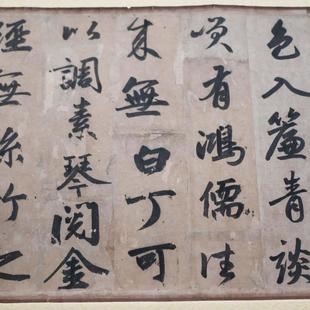 色入簾青談
咲有鴻儒往
来無白丁可
以調素琴閱金
經無糸竹之